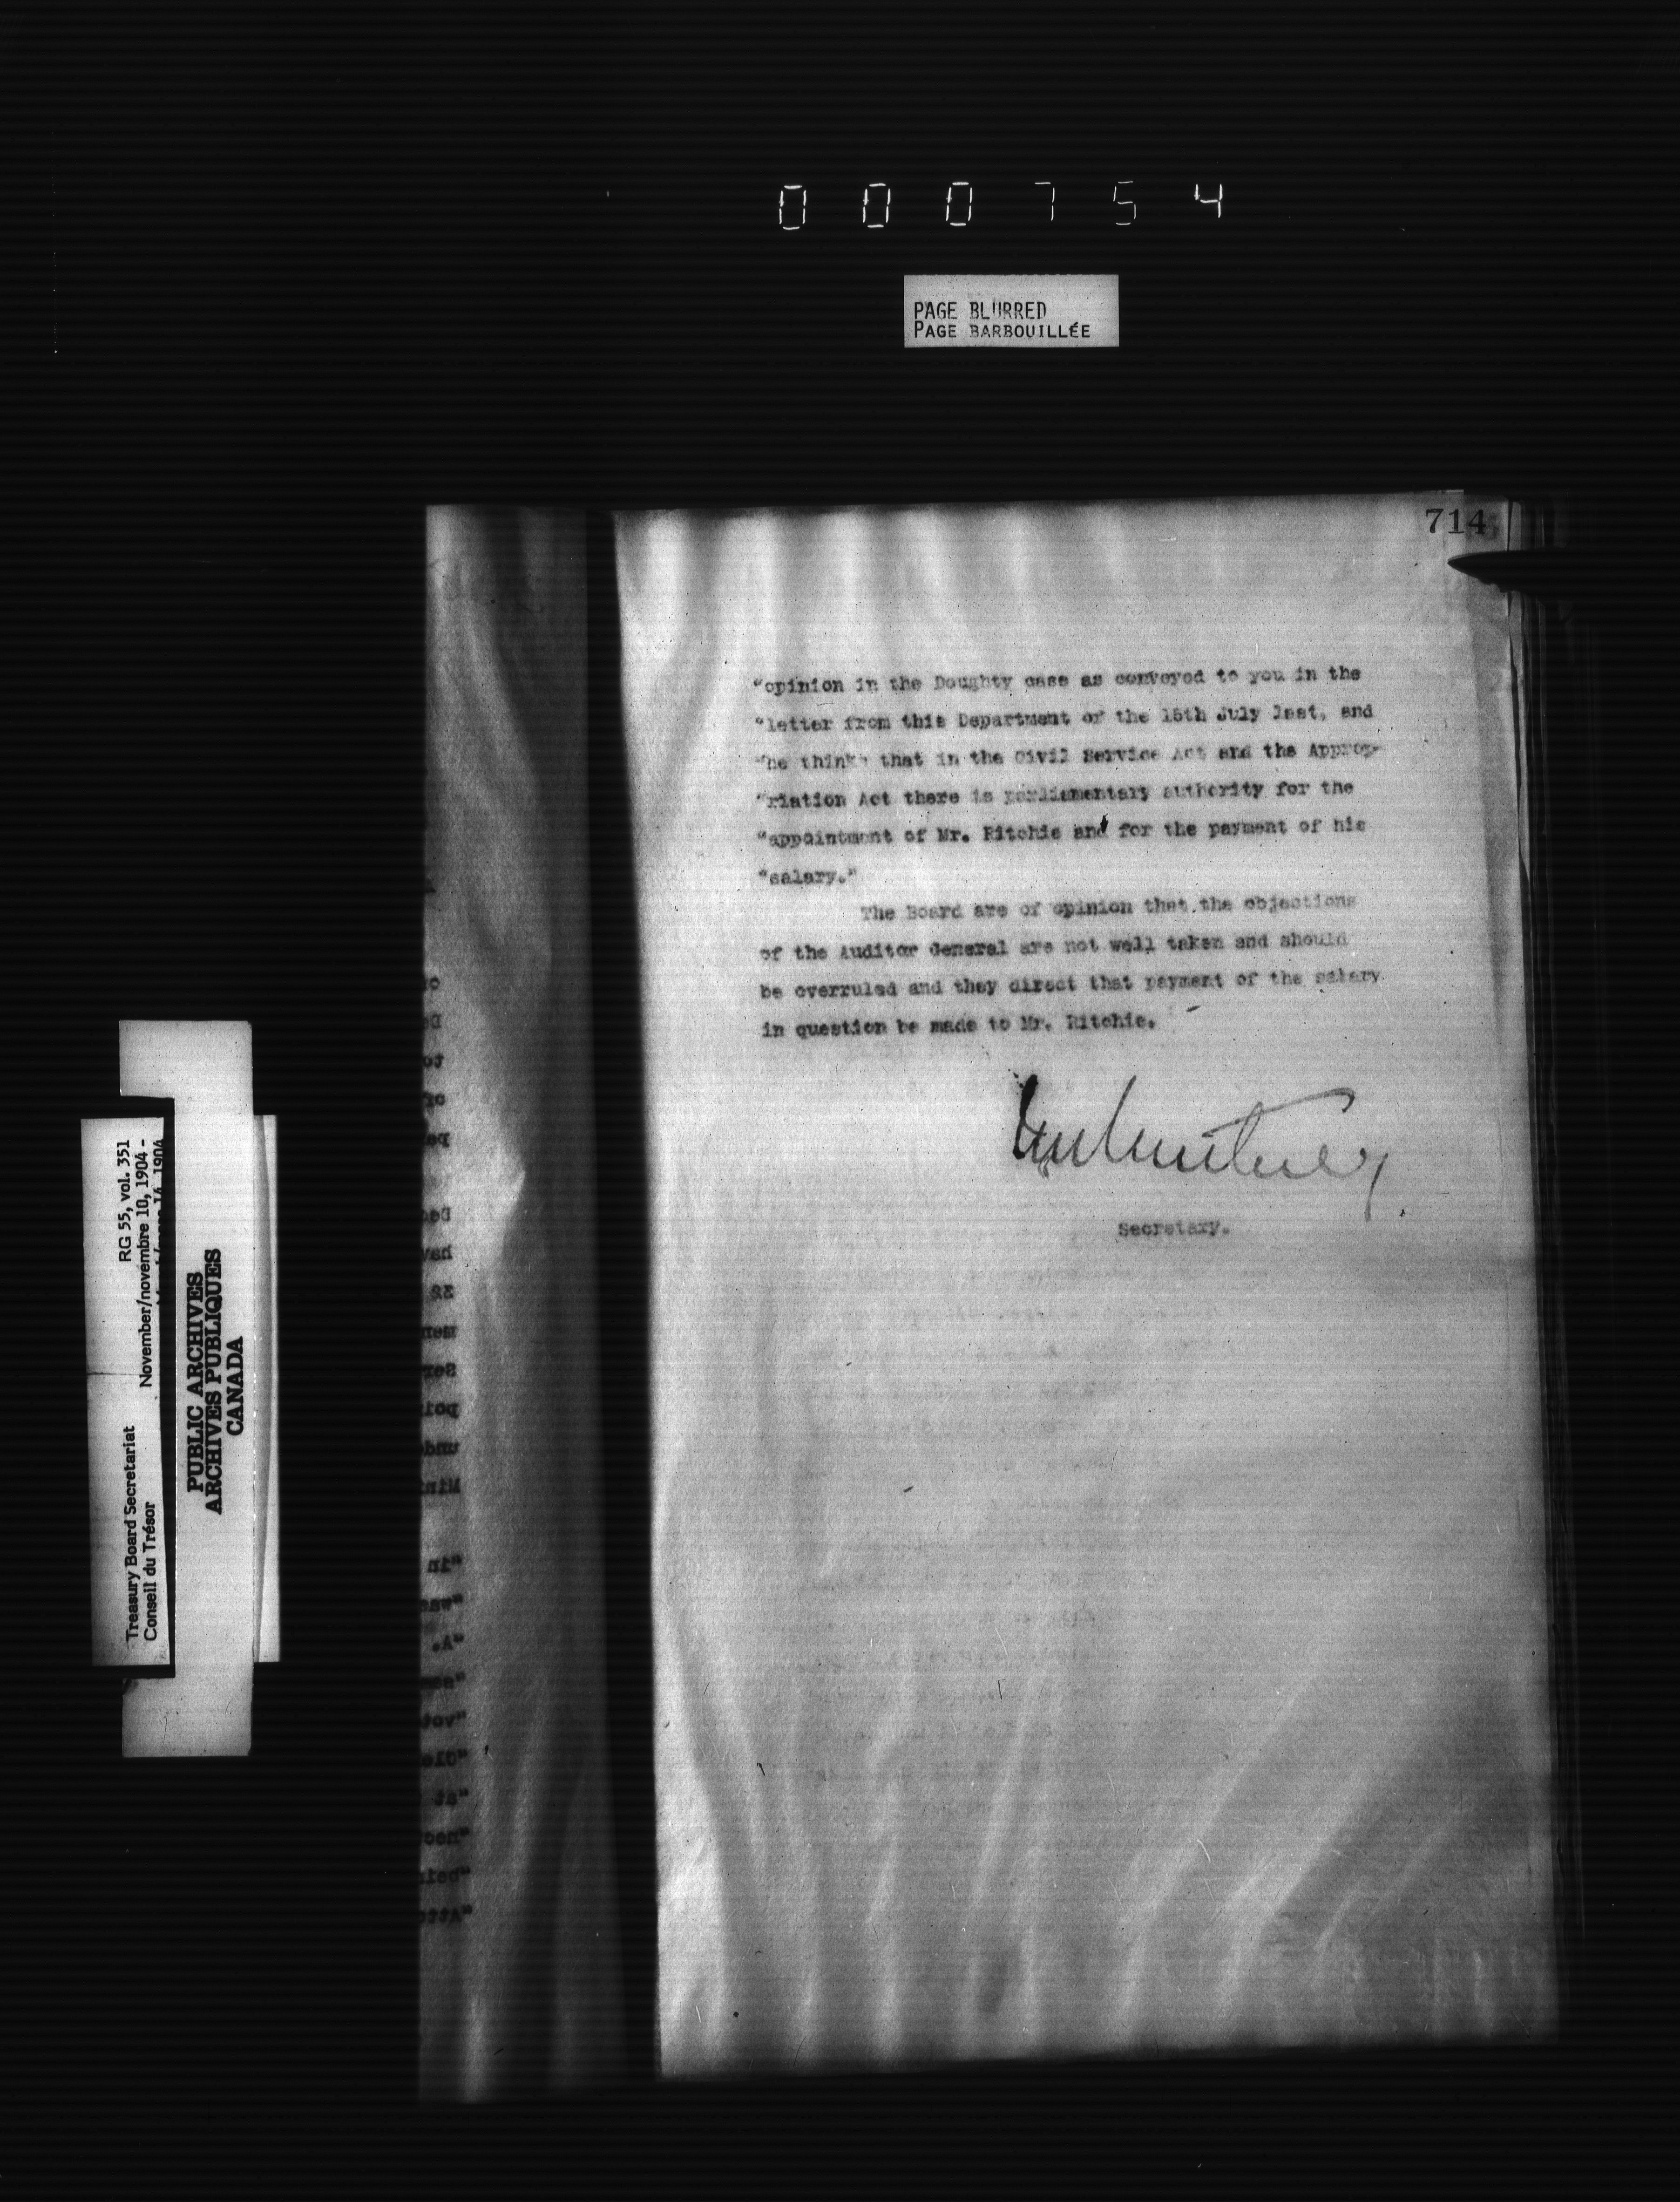 000754
PAGE BLURRED
PAGE BARBOUILLÉE
714
"opinion in the Doughty case as conveyed to you in the
"letter from this Department of the 15th July last, and
"he thinks that in the Civil Service Act and the Approp-
"riation Act there is parliamentary authority for the
"appointment of Mr. Ritchie and for the payment of his
"salary."
The Board are of opinion that the objections
of the Auditor General are not well taken and should
be overruled and they direct that payment of the salary
in question be made to Mr. Ritchie.
Secretary.
Treasury Board Secretariat RG 55, vol. 351
Conseil du Trésor November/novembre 10, 1904 -
1904
PUBLIC ARCHIVES
ARCHIVES PUBLIQUES
CANADA